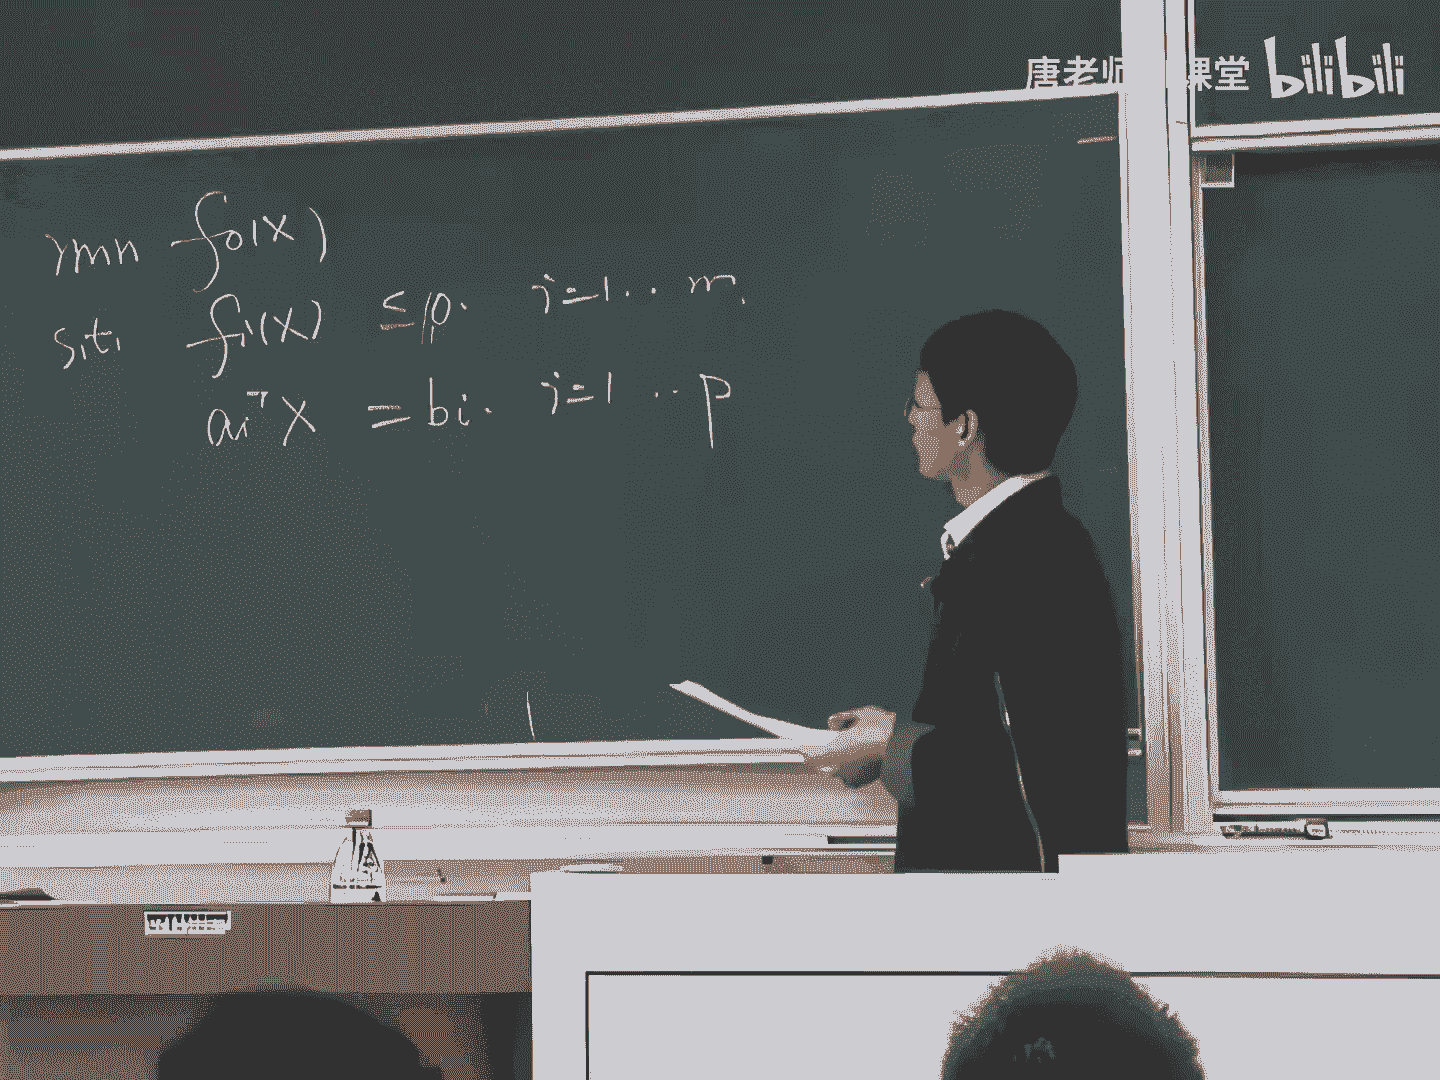 唐老师 课堂 bilibili
min f₀(x)
s.t. fi(x) ≤ 0. i=1.. m.
aiᵀx = bi. i=1 .. p